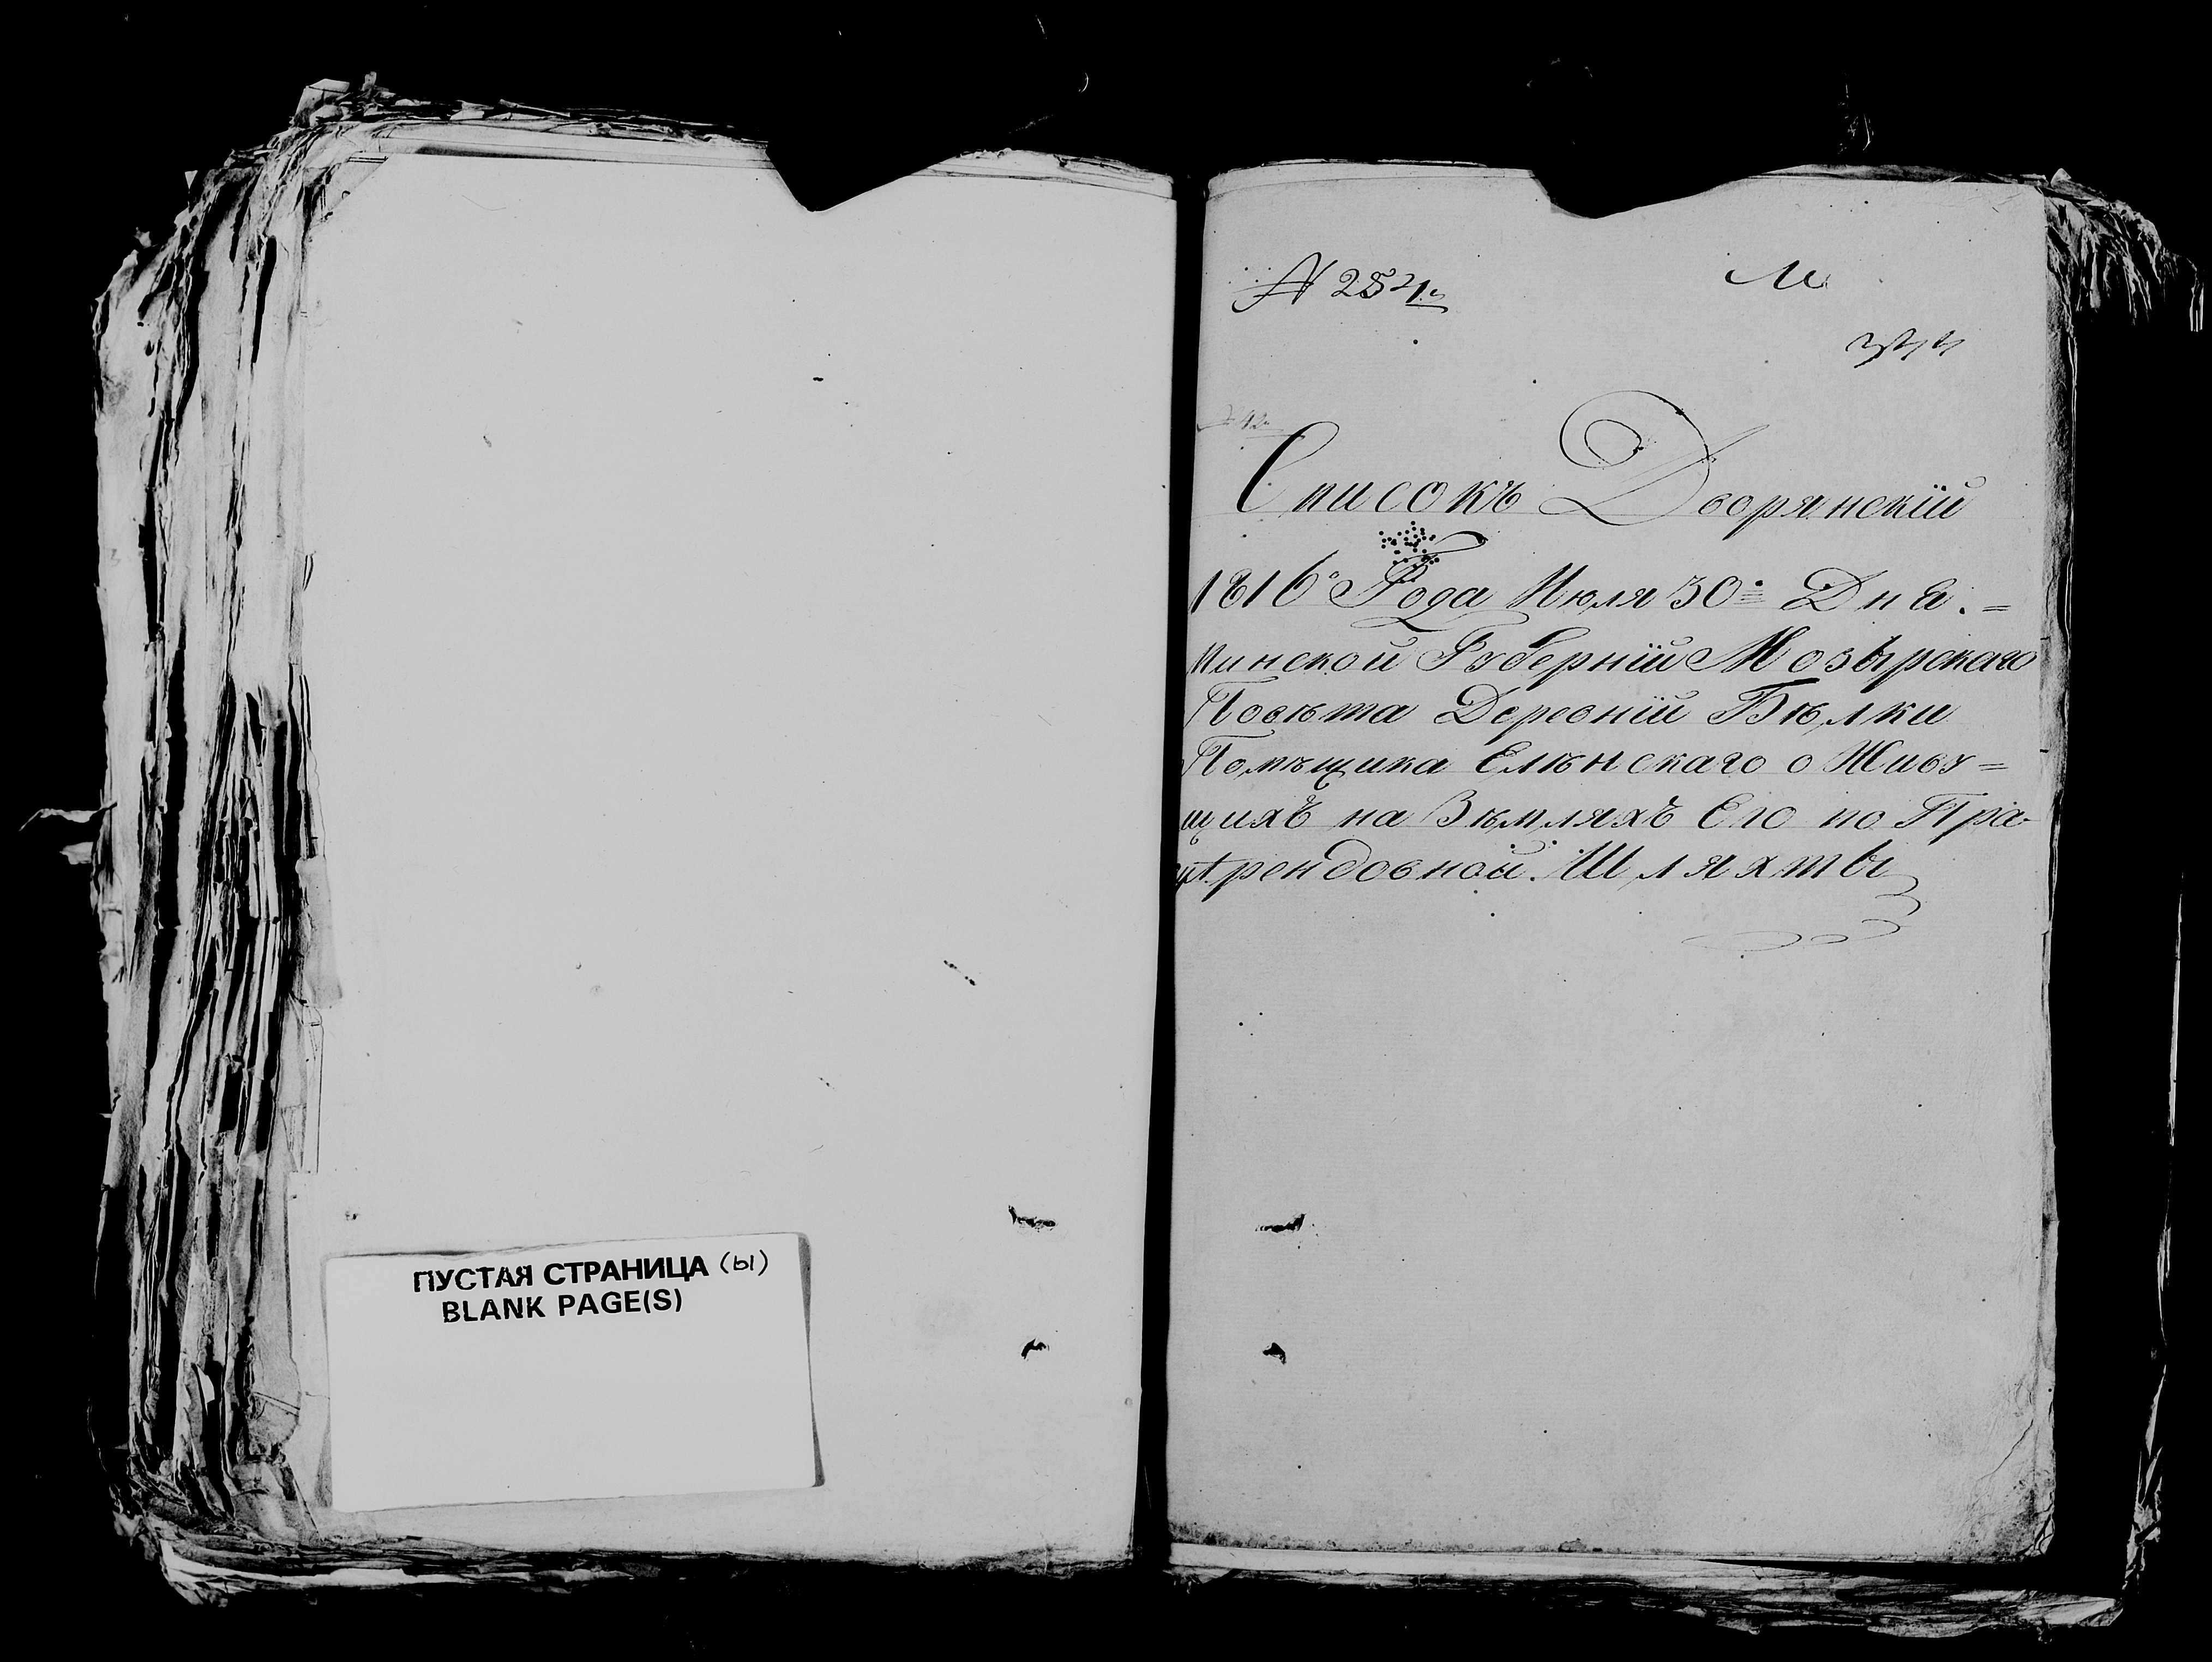 ПУСТАЯ СТРАНИЦА (ы)
BLANK PAGE(S)
№ 254
М
344
Списокъ Дворянскiй
1816 Года Июля 30 Дня
Минской Губернiи Мозырскаго
Повѣта Деревнiи Бѣлки
Помѣщика Елѣнскаго о Живу=
щихъ на Зѣмляхъ Его по Пра-
рендовной Шляхты